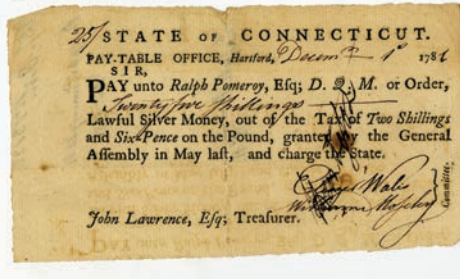 25/ STATE OF CONNECTICUT.
PAY-TABLE OFFICE, Hartford, Decemr 1st 1781
SIR,
PAY unto Ralph Pomeroy, Esq; D. Q. M. or Order,
Twenty five Shillings
Lawful Silver Money, out of the Tax of Two Shillings
and Six-Pence on the Pound, granted by the General
Assembly in May last, and charge the State.
Wales
William Moseley
Committee.
John Lawrence, Esq; Treasurer.